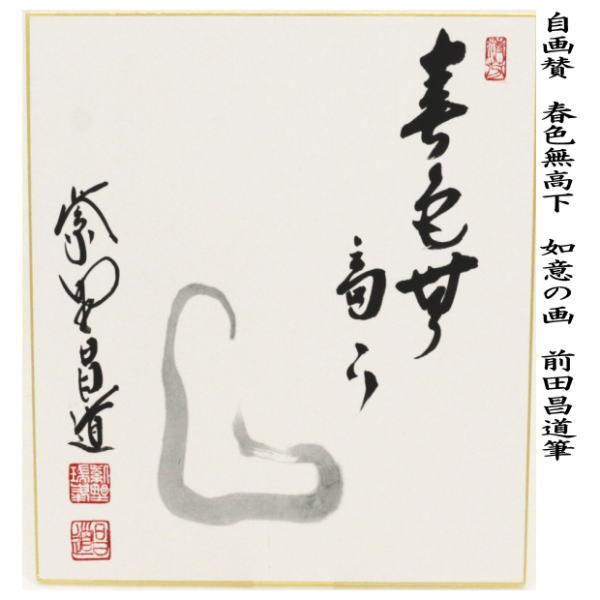 自画賛　春色無高下　如意の画　前田昌道筆
春色無
高下
紫野昌道